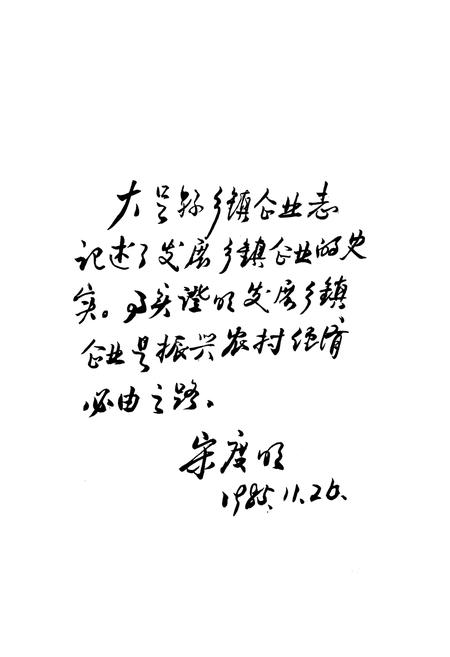 大足县乡镇企业志
记述了发展乡镇企业的史
实。事实證明发展乡镇
企业是振兴农村经济
必由之路。
宋度明
1985.11.26.